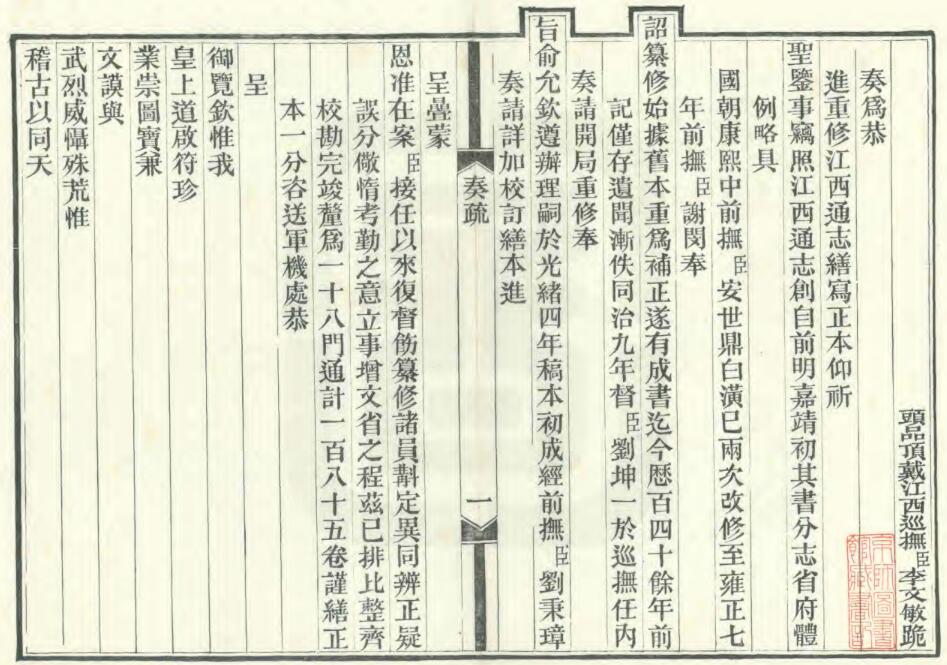 頭品頂戴江西巡撫臣李文敏跪
奏爲恭
進重修江西通志繕寫正本仰祈
聖鑒事竊照江西通志創自前明嘉靖初其書分志省府體
例略具
國朝康熙中前撫臣安世鼎白潢已兩次改修至雍正七
年前撫臣謝旻奉
詔纂修始據舊本重爲補正遂有成書迄今歷百四十餘年前
記僅存遺聞漸佚同治九年督臣劉坤一於巡撫任內
奏請開局重修奉
旨俞允欽遵辦理嗣於光緒四年稿本初成經前撫臣劉秉璋
奏請詳加校訂繕本進
奏疏
一
呈曡蒙
恩准在案臣接任以來復督飭纂修諸員斠定異同辨正疑
誤分儆惰考勤之意立事增文省之程茲已排比整齊
校勘完竣釐爲一十八門通計一百八十五卷謹繕正
本一分咨送軍機處恭
呈
御覽欽惟我
皇上道啟符珍
業崇圖寶兼
文謨與
武烈威懾殊荒惟
稽古以同天
京師圖書館藏書印